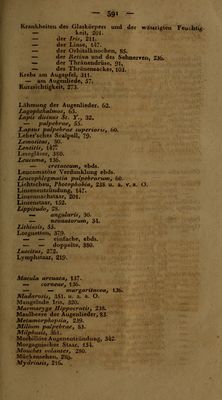 — 591 —
Krankheiten des Glaskörpers und der wässrigten Feuchtig-
— keit, 201.
— der Iris, 211.
— der Linse, 147.
— der Orbitalknochen, 85.
— der Retina und des Sehnerven, 236.
— der Thränendrüse, 91.
— des Thränensackes, 101.
Krebs am Augapfel, 311.
— am Augenliede, 57.
Kurzsichtigkeit, 273.
Lähmung der Augenlieder, 62.
Lagophthalmos, 65.
Lapis divinus St. Y., 32.
— palpebrae, 55.
Lapsus palpebrae superioris, 60.
Leber'sches Scalpell, 79.
Lemositas, 30.
Lentitis, 147
Lesegläser, 380.
Leucoma, 136.
— cretaceum, ebds.
Leucomatöse Verdunklung ebds.
Leucophlegmatia palpebrarum, 60.
Lichtscheu, Photophobia, 238 u. a. v. a. O.
Linsenentzündung, 147.
Linsennachstaar, 201.
Linsenstaar, 152.
Lippitudo, 28.
— angularis, 30.
— neonatorum, 34.
Lithiasis, 55.
Lorgnetten, 379.
— — einfache, ebds.
— — doppelte, 380.
Luscitas, 273.
Lymphstaar, 219.
Macula arcuata, 137.
— corneae, 136.
— — margaritacea, 136.
Madarosis, 351. u. a. a. O.
Mangelnde Iris, 320.
Marmaryge Hippocratis, 238.
Maulbeere der Augenlieder, 83.
Metamorphopsia, 239.
Milium palpebrae, 83.
Milphosis, 361.
Morbillöse Augenentzündung, 342.
Morgagnischer Staar, 154.
Mouches volantes, 280.
Mückensehen, 280.
Mydriasis, 216.